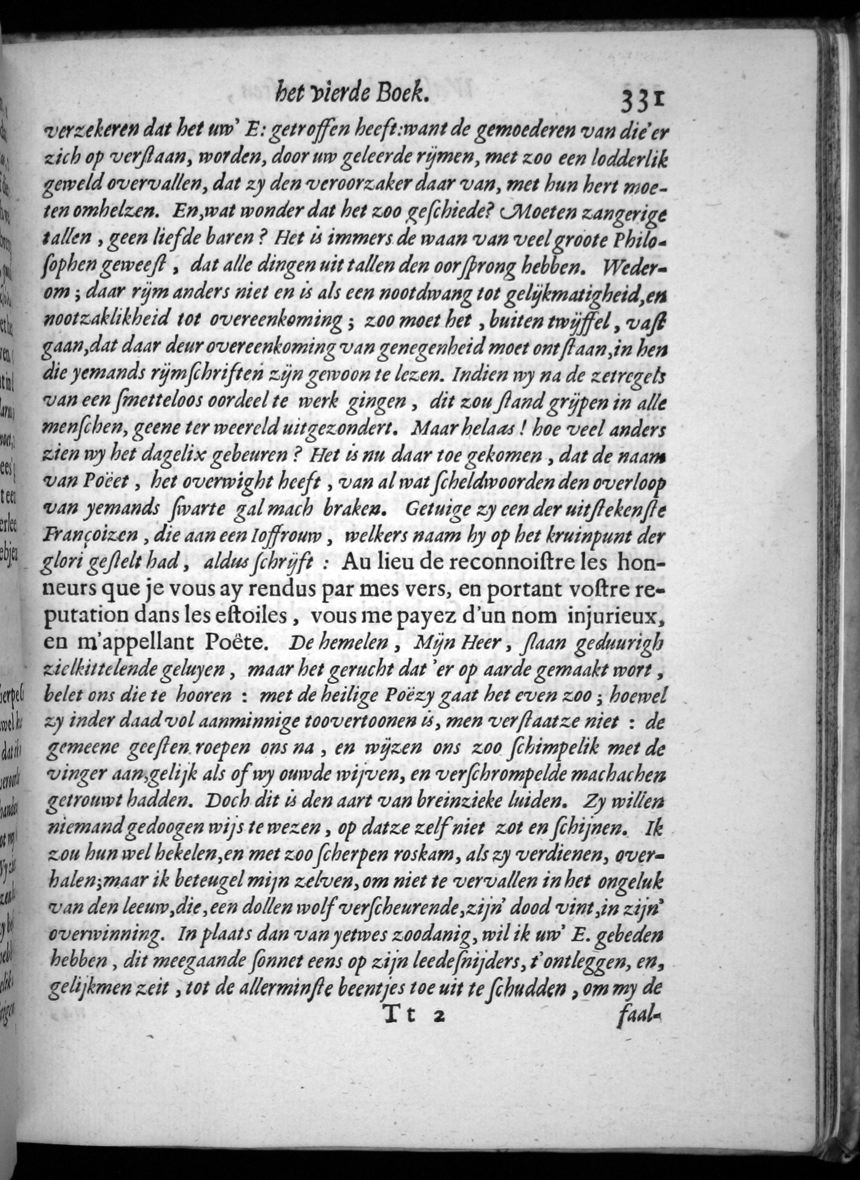 het vierde Boek. 331
verzekeren dat het uw' E: getroffen heeft: want de gemoederen van die'er
zich op verſtaan, worden, door uw geleerde rijmen, met zoo een lodderlik
geweld overvallen, dat zy den veroorzaker daar van, met hun hert moe-
ten omhelzen. En, wat wonder dat het zoo geſchiede? Moeten zangerige
tallen, geen liefde baren? Het is immers de waan van veel groote Philo-
ſophen geweeſt, dat alle dingen uit tallen den oorſprong hebben. Weder-
om; daar rijm anders niet en is als een nootdwang tot gelijkmatigheid, en
nootzaklikheid tot overeenkoming; zoo moet het, buiten twijffel, vaſt
gaan, dat daar deur overeenkoming van genegenheid moet ontſtaan, in hen
die yemands rijmſchriften zijn gewoon te lezen. Indien wy na de zetregels
van een ſmetteloos oordeel te werk gingen, dit zou ſtand grijpen in alle
menſchen, geene ter weereld uitgezondert. Maar helaas! hoe veel anders
zien wy het dagelix gebeuren? Het is nu daar toe gekomen, dat de naam
van Poëet, het overwight heeft, van al wat ſcheldwoorden den overloop
van yemands ſwarte gal mach braken. Getuige zy een der uitſtekenſte
Françoizen, die aan een Ioffrouw, welkers naam hy op het kruinpunt der
glori geſtelt had, aldus ſchrijft: Au lieu de reconnoiſtre les hon-
neurs que je vous ay rendus par mes vers, en portant voſtre re-
putation dans les eſtoiles, vous me payez d'un nom injurieux,
en m'appellant Poëte. De hemelen, Mijn Heer, ſlaan geduurigh
zielkittelende geluyen, maar het gerucht dat 'er op aarde gemaakt wort,
belet ons die te hooren: met de heilige Poëzy gaat het even zoo; hoewel
zy inder daad vol aanminnige toovertoonen is, men verſtaatze niet: de
gemeene geeſten roepen ons na, en wijzen ons zoo ſchimpelik met de
vinger aan, gelijk als of wy ouwde wijven, en verſchrompelde machachen
getrouwt hadden. Doch dit is den aart van breinzieke luiden. Zy willen
niemand gedoogen wijs te wezen, op datze zelf niet zot en ſchijnen. Ik
zou hun wel hekelen, en met zoo ſcherpen roskam, als zy verdienen, over-
halen; maar ik beteugel mijn zelven, om niet te vervallen in het ongeluk
van den leeuw, die, een dollen wolf verſcheurende, zijn' dood vint, in zijn'
overwinning. In plaats dan van yetwes zoodanig, wil ik uw' E. gebeden
hebben, dit meegaande ſonnet eens op zijn leedeſnijders, t'ontleggen, en,
gelijkmen zeit, tot de allerminſte beentjes toe uit te ſchudden, om my de
Tt 2 faal-